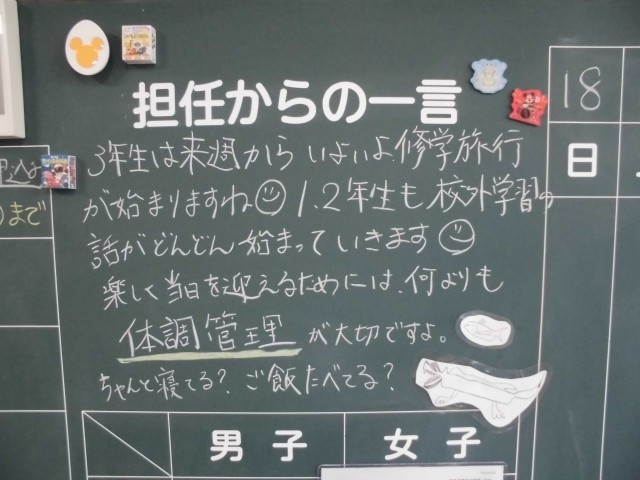 担任からの一言
18
日
3年生は来週から いよいよ修学旅行
が始まりますね 1.2年生も校外学習の
話がどんどん始まっていきます
楽しく当日を迎えるためには、何よりも
体調管理が大切ですよ。
ちゃんと寝てる？ご飯たべてる？
まで
男子
女子